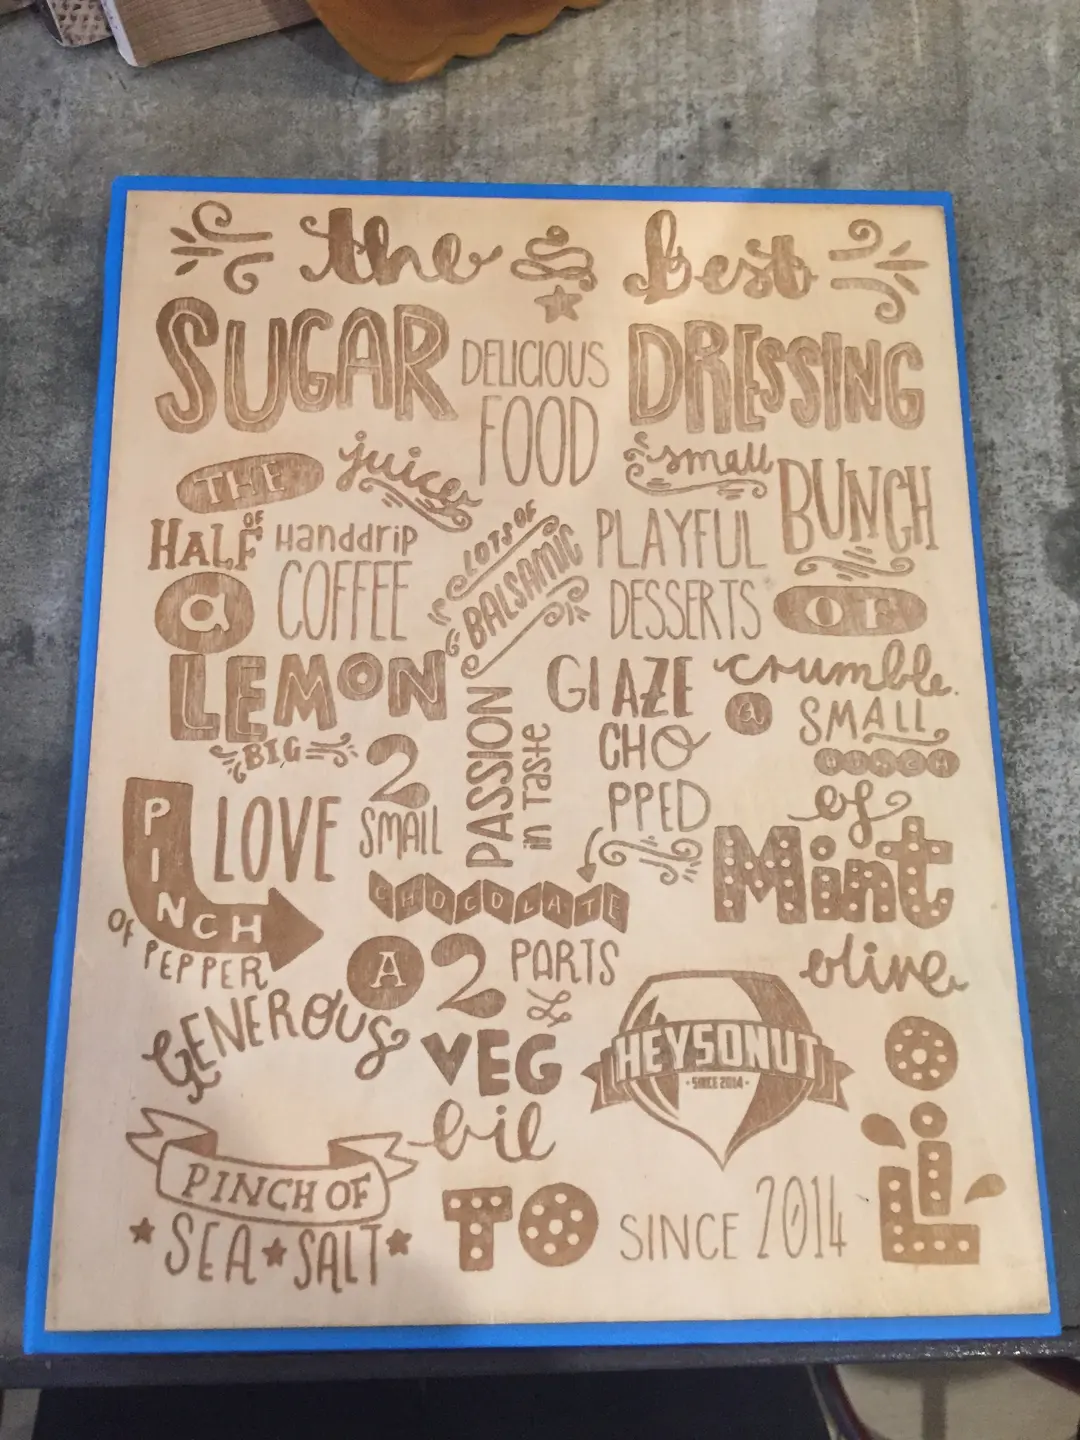 the best
SUGAR
DELICIOUS
FOOD
DRESSING
THE
juices
small
BUNCH
HALF OF
Handdrip
COFFEE
LOTS OF
BALSAMIC
PLAYFUL
DESSERTS
OF
a
LEMON
GLAZE
crumble.
BIG
2
SMALL
PASSION
in Taste
CHO
PPED
a
SMALL
BUNCH
of
Mint
PINCH
OF
PEPPER
LOVE
CHOCOLATE
A 2 PARTS
olive
GENEROUS
VEG
HEYSONUT
• SINCE 2014 •
PINCH OF
SEA SALT
TO
SINCE 2014